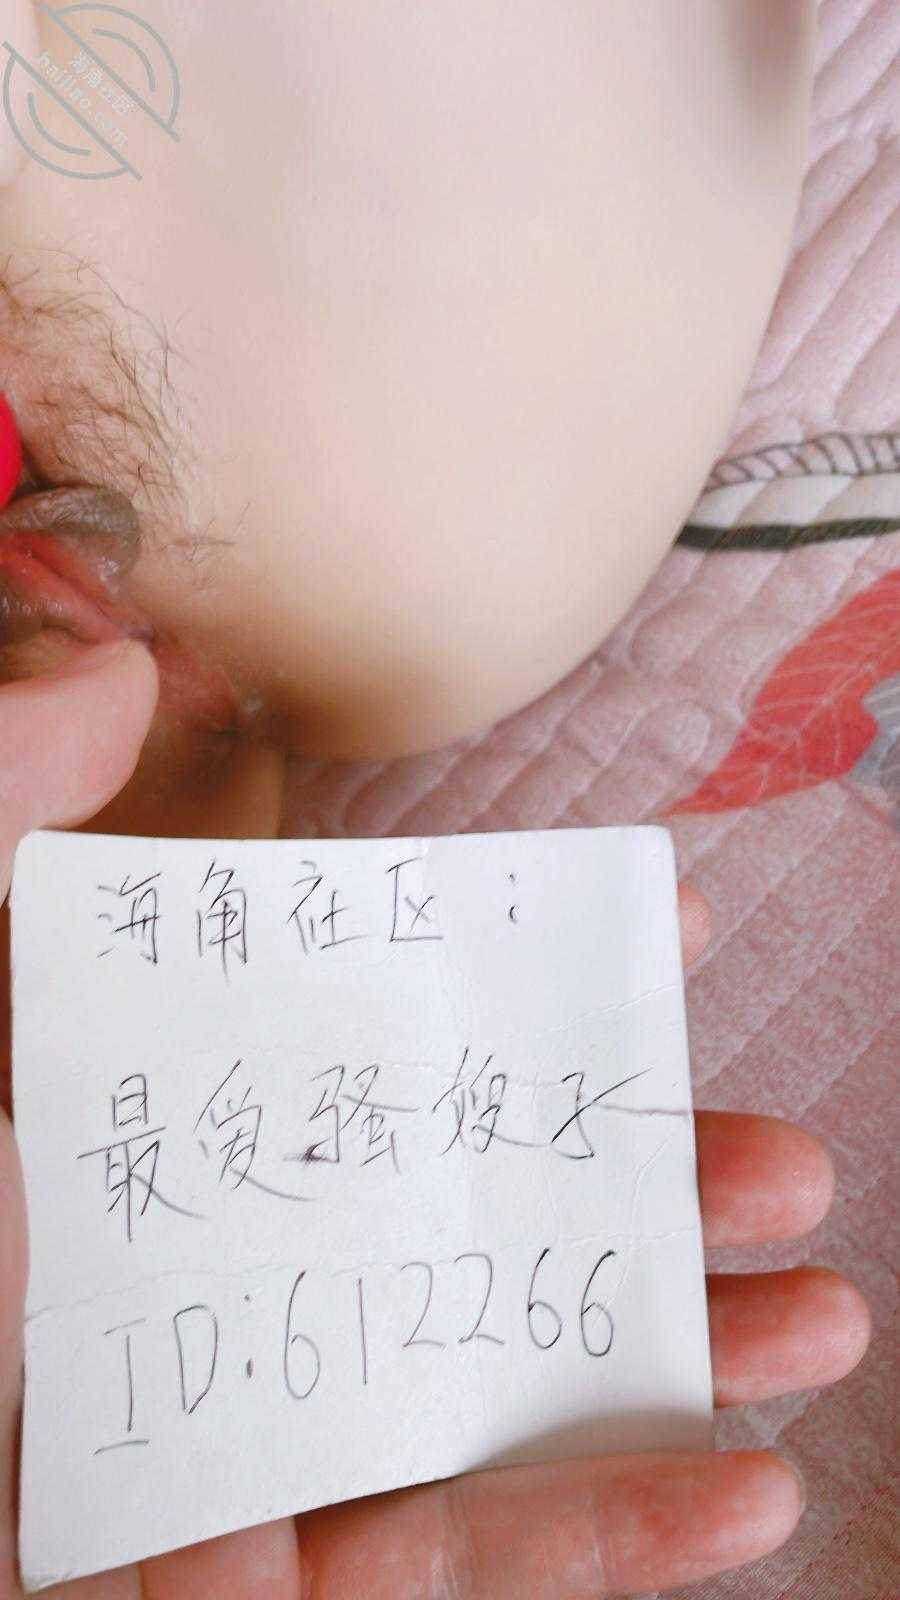 海角社区
haijiao.com
海角社区:
最爱骚嫂子
ID:612266